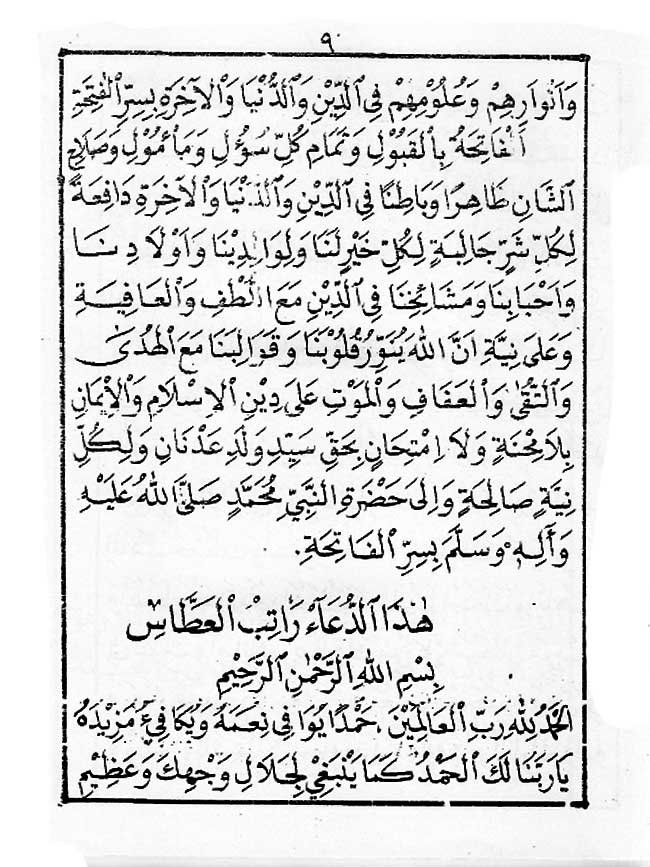 ٩
وَاَنْوَارِهِمْ وَعُلُوْمِهِمْ فِى الدِّيْنِ وَالدُّنْيَا وَالْآخِرَةِ بِسِرِّ الْفَتِحَةِ
اَلْفَاتِحَةُ بِالْقَبُوْلِ وَتَمَامِ كُلِّ سُؤُلٍ وَمَأْمُوْلٍ وَصَلَاحِ
الشَّانِ ظَاهِرًا وَبَاطِنًا فِى الدِّيْنِ وَالدُّنْيَا وَالْآخِرَةِ دَافِعَةً
لِكُلِّ شَرٍّ جَالِبَةٍ لِكُلِّ خَيْرٍ لَنَا وَلِوَالِدِيْنَا وَاَوْلَادِنَا
وَاَحْبَابِنَا وَمَشَائِخِنَا فِى الدِّيْنِ مَعَ الْلُطْفِ وَالْعَافِيَةِ
وَعَلَى نِيَّةِ اَنَّ اللهَ يُنَوِّرُ قُلُوْبَنَا وَقَوَالِبَنَا مَعَ الْهُدَى
وَالتُّقٰى وَالْعَفَافِ وَالْمَوْتِ عَلَى دِيْنِ الْاِسْلَامِ وَالْاِيْمَانِ
بِلَا مِحْنَةٍ وَلَا اِمْتِحَانٍ بِحَقِّ سَيِّدِ وَلَدِ عَدْنَانِ وَلِكُلِّ
نِيَّةٍ صَالِحَةٍ وَاِلَى حَضْرَةِ النَّبِيِّ مُحَمَّدٍ صَلَّى اللهُ عَلَيْهِ
وَأٰلِهِ وَسَلَّمَ بِسِرِّ الْفَاتِحَةِ.
هٰذَا الدُّعَآءُ رَاتِبْ الْعَطَّاسْ
بِسْمِ اللهِ الرَّحْمٰنِ الرَّحِيْمِ
اَلْحَمْدُ لِلّٰهِ رَبِّ الْعَالَمِيْنَ، حَمْدًا يُوَافِى نِعَمَهُ وَيُكَافِيءُ مَزِيْدَهُ
يَا رَبَّنَا لَكَ الْحَمْدُ كَمَا يَنْبَغِيْ لِجَلَالِ وَجْهِكَ وَعَظِيْمِ